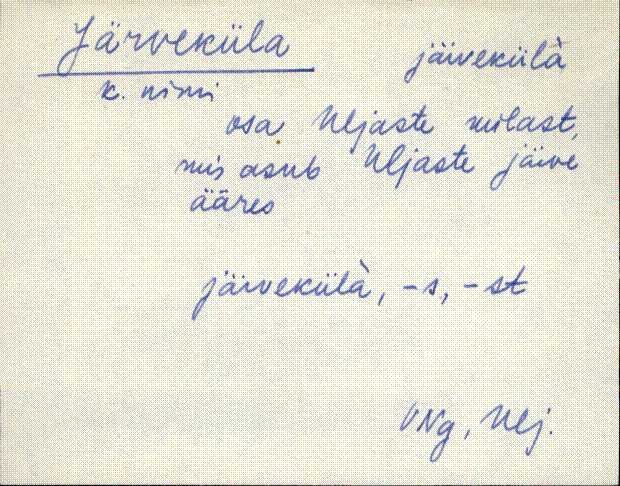 Järveküla järvekülà
k. nimi
osa Uljaste külast,
mis asub Uljaste järve
ääres
järvekülà, -s, -st
VNg, Ulj.